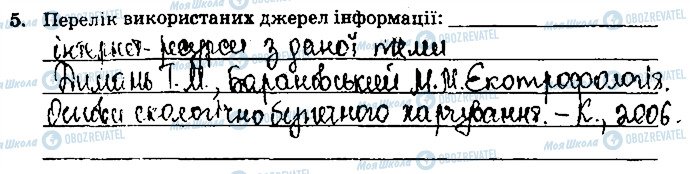 5. Перелік використаних джерел інформації:
інтернет-ресурси з даної теми
Димань Т.М., Барановський М.М. Екотрофологія.
Основи екологічно безпечного харчування. – К., 2006.